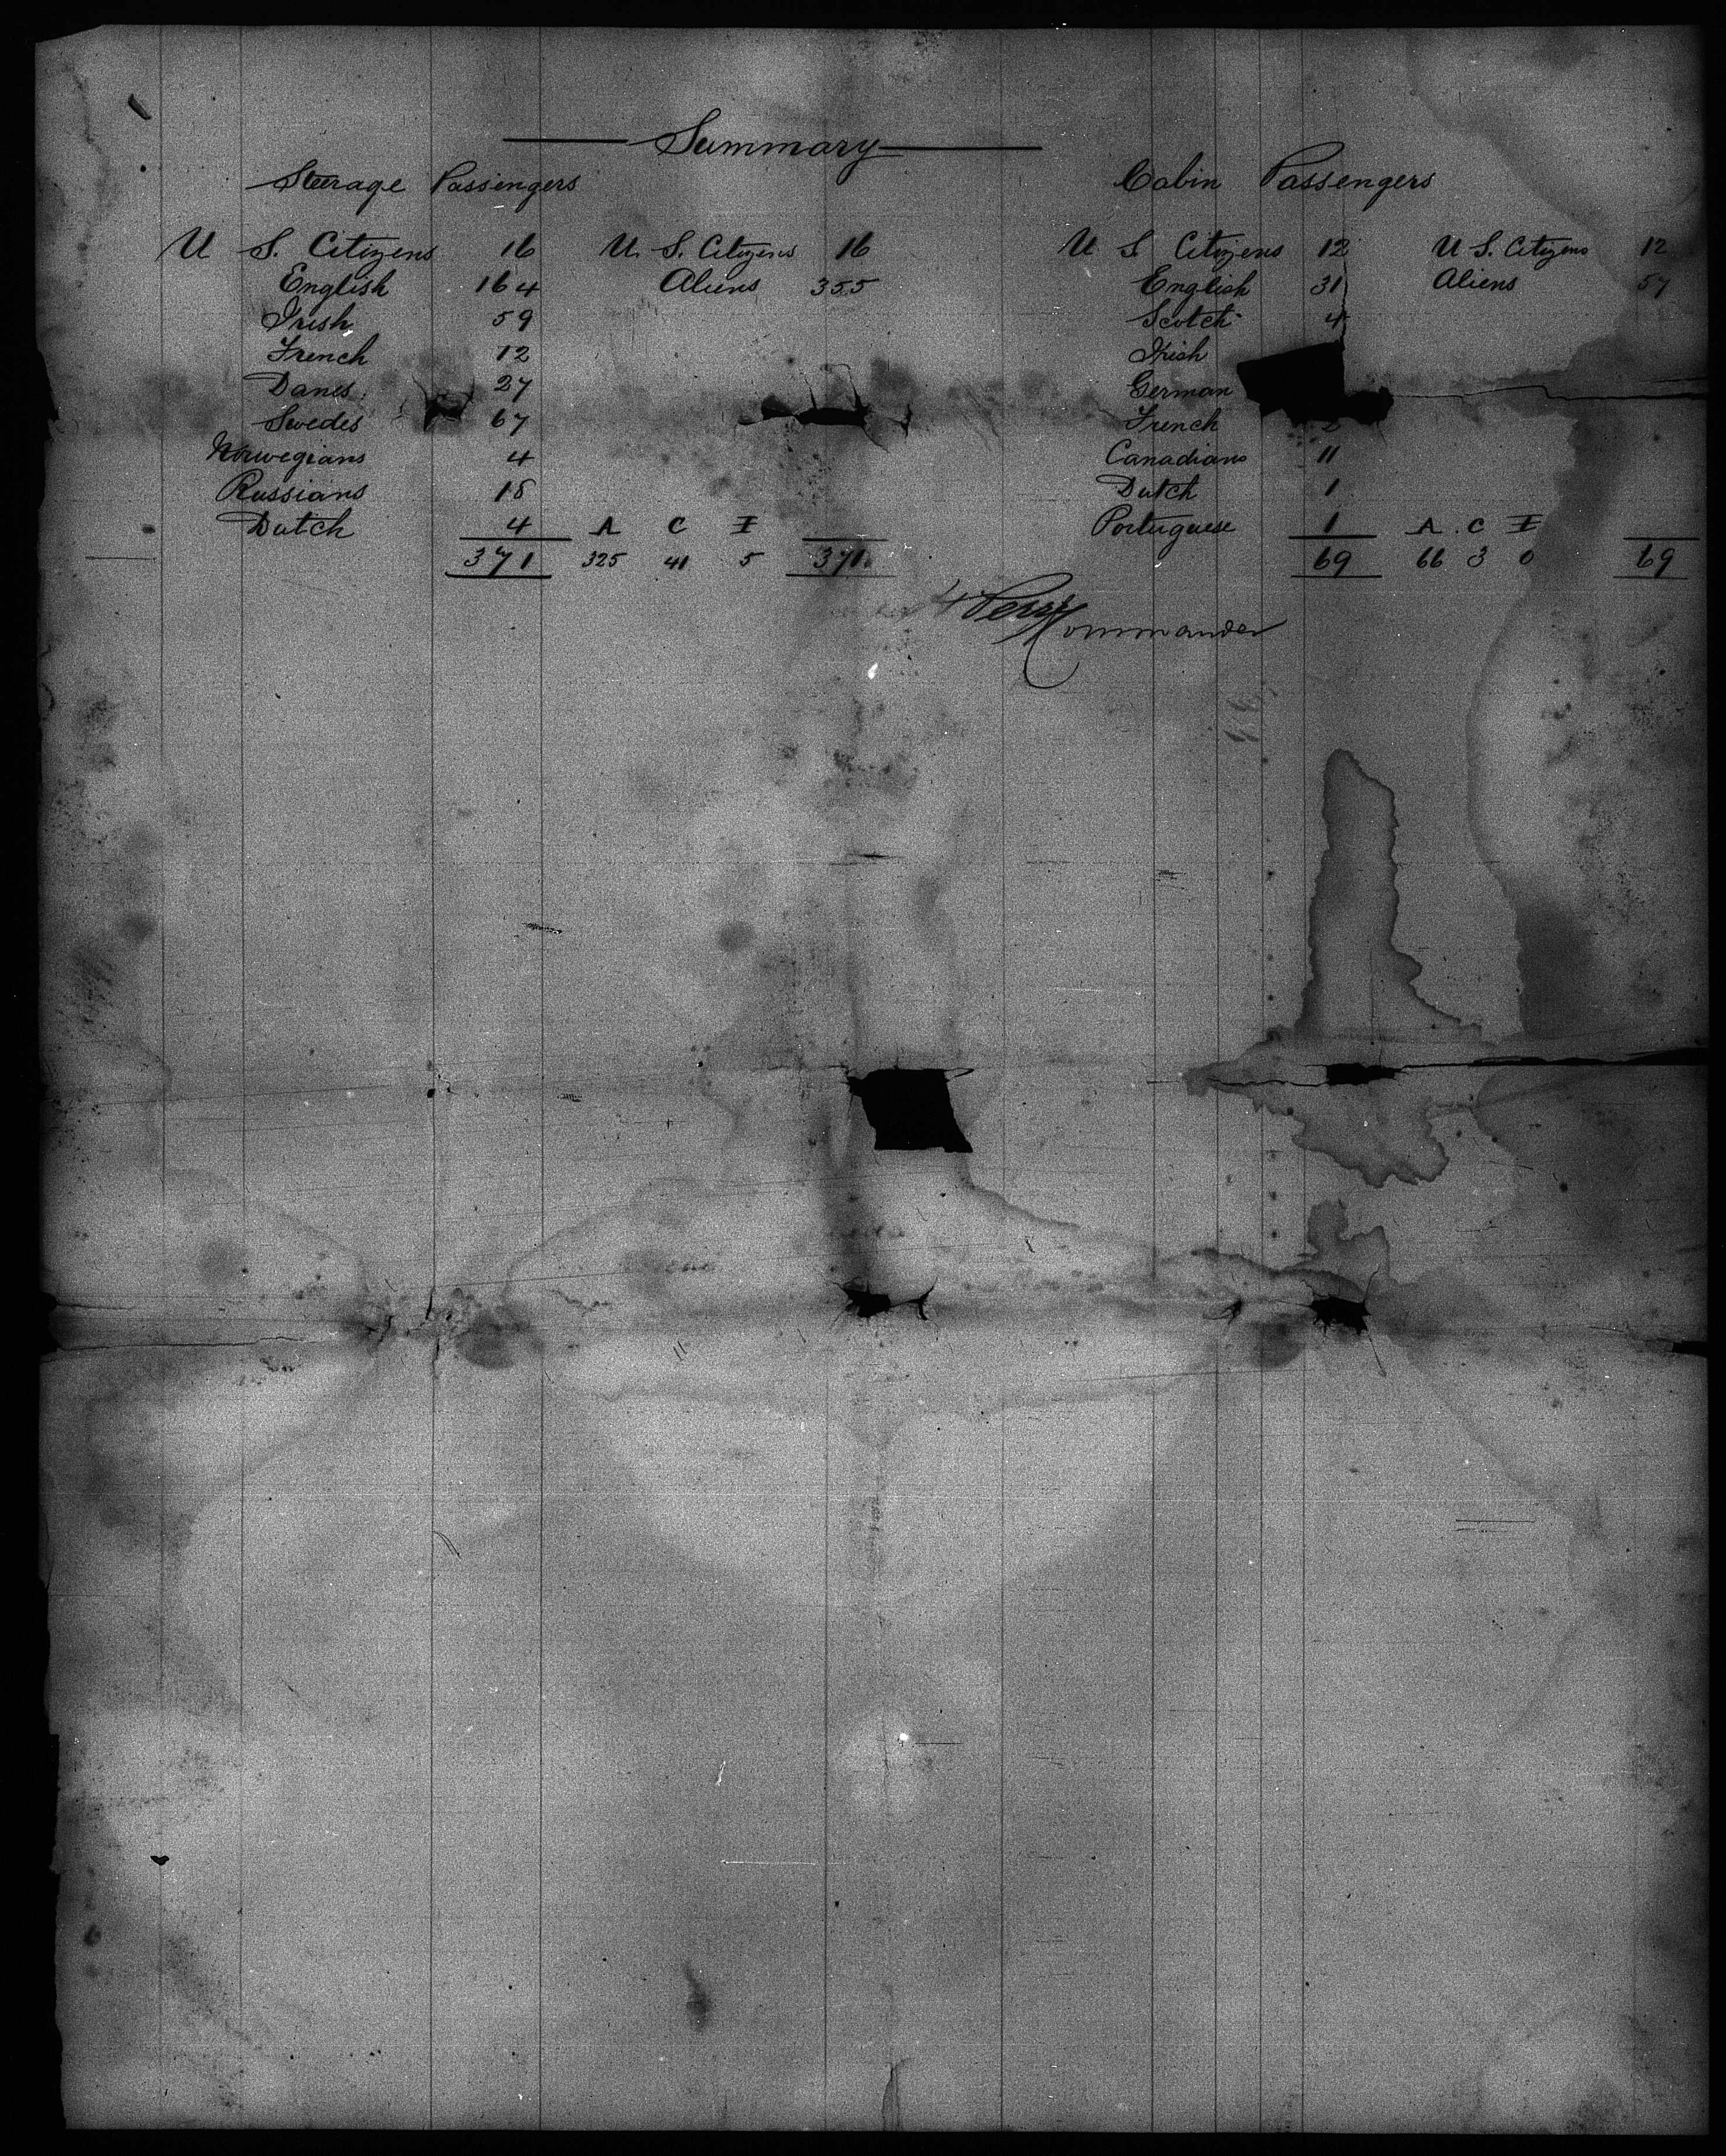 Summary
Steerage Passengers Cabin Passengers
U S. Citizens 16 U. S. Citizens 16 U S Citizens 12 U S. Citizens 12
English 164 Aliens 355 English 31 Aliens 57
Irish 59 Scotch 4
French 12 Irish
Danes 27 German
Swedes 67 French 2
Norwegians 4 Canadians 11
Russians 18 Dutch 1
Dutch 4 A C I Portuguese 1 A. C I
371 325 41 5 371 69 66 3 0 69
Perry Commander